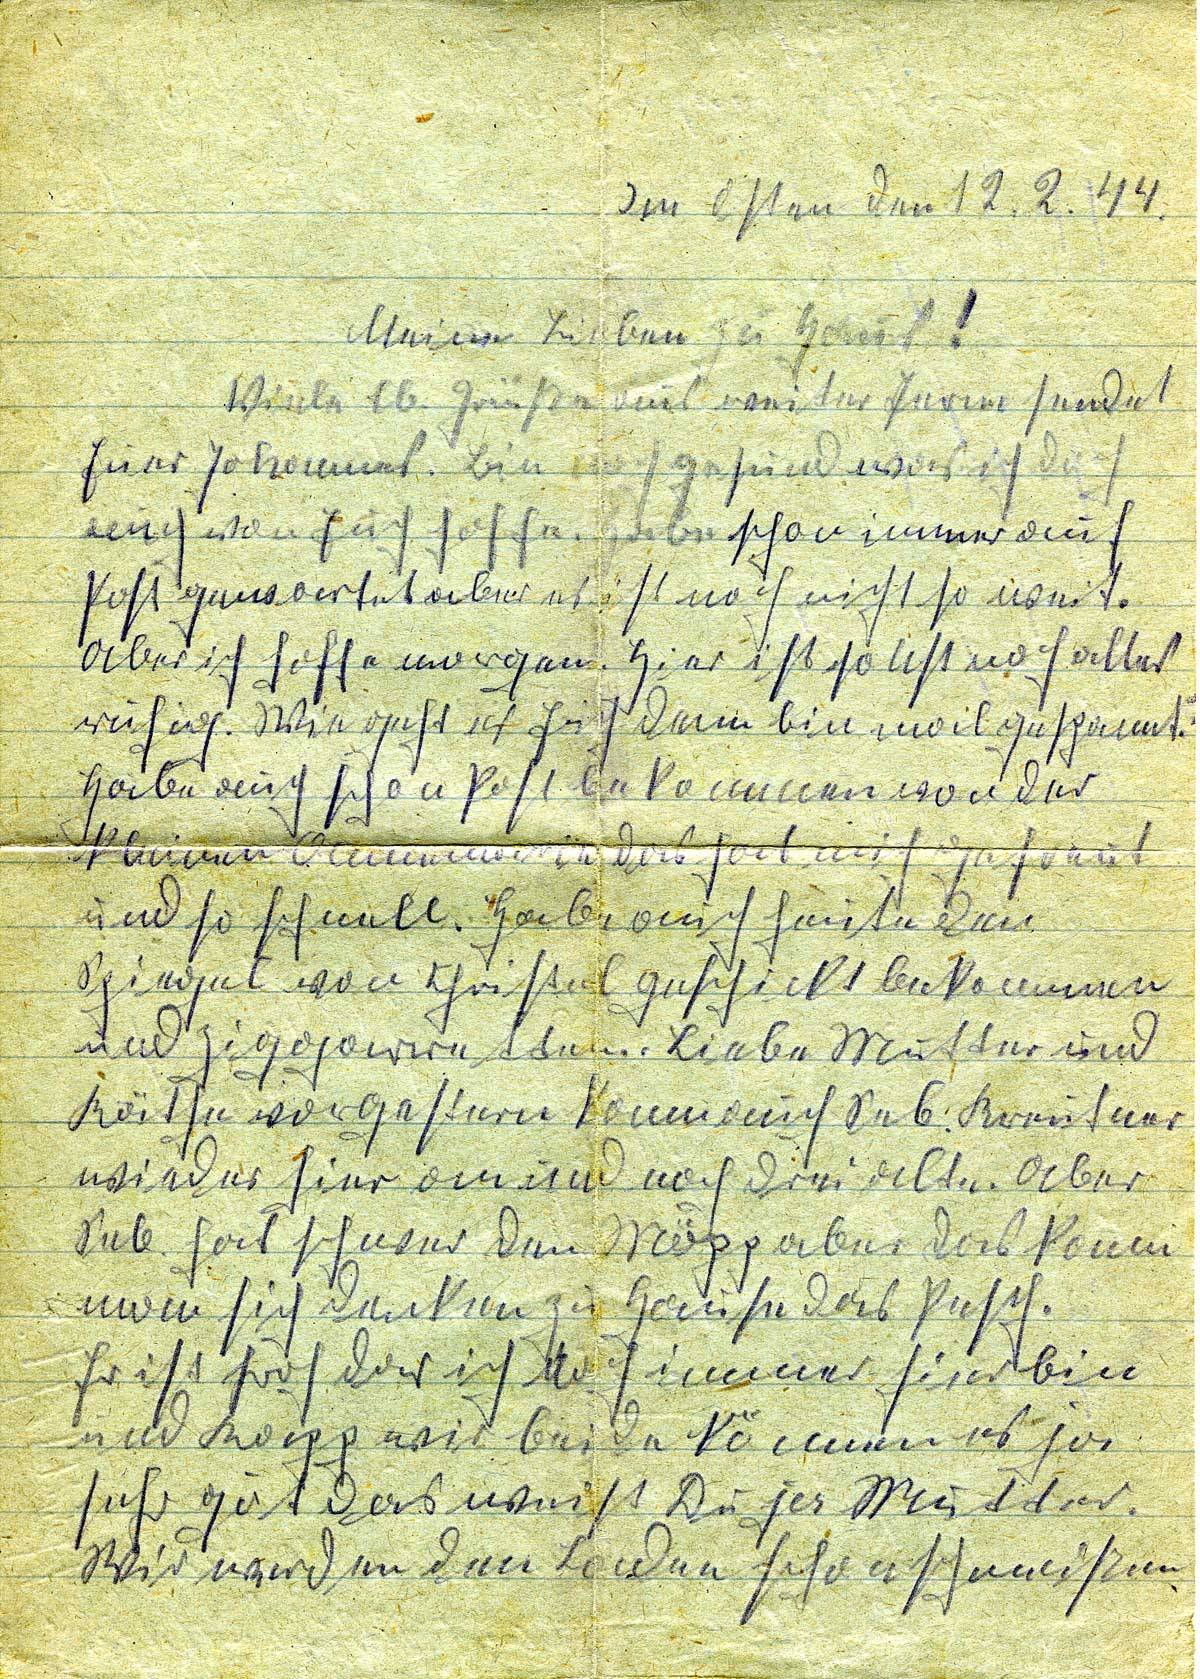 Im Osten den 12.2.44.
Meine Lieben zu Haus!
Viele lb. Grüße aus weiter Ferne sendet
Euer Johannes. Bin noch gesund was ich doch
auch von Euch hoffe. Habe schon immer auf
Post gewartet aber es ist noch nicht so weit.
Aber ich hoffe morgen. Hier ist sonst noch alles
ruhig. Wie geht es Euch denn bin mal gespannt.
Habe auch schon Post bekommen von der
kleinen Annemarie das hat mich gefreut
und so schnell. Habe auch heute den
Spiegel von Christel geschickt bekommen
und Zigaretten. Liebe Mutter und
Käthe vorgestern kam auch Seb. Kreutner
wieder hier an und noch drei alte. Aber
Seb. hat schwer den Möpp aber das kann
man sich denken zu Hause das
Er ist froh das ich noch immer hier bin
und Kapp wir beide können es ja
sehr gut das weist Du ja Mutter.
Wir werden den Laden schon schmeißen